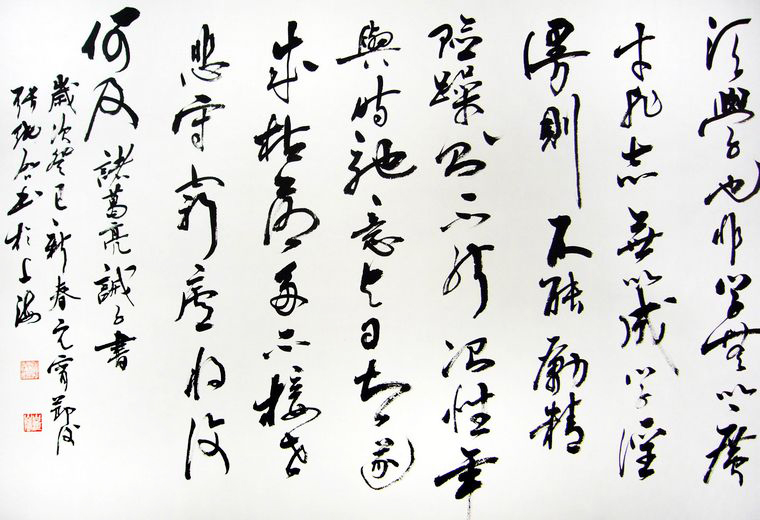 须學也非学無以廣
才非志無以成学淫
漫則不能勵精
险躁则不能冶性年
與时馳意与日去遂
成枯落多不接世
悲守窮廬将復
何及 諸葛亮誡子書
歲次癸巳新春元宵節後
書於上海